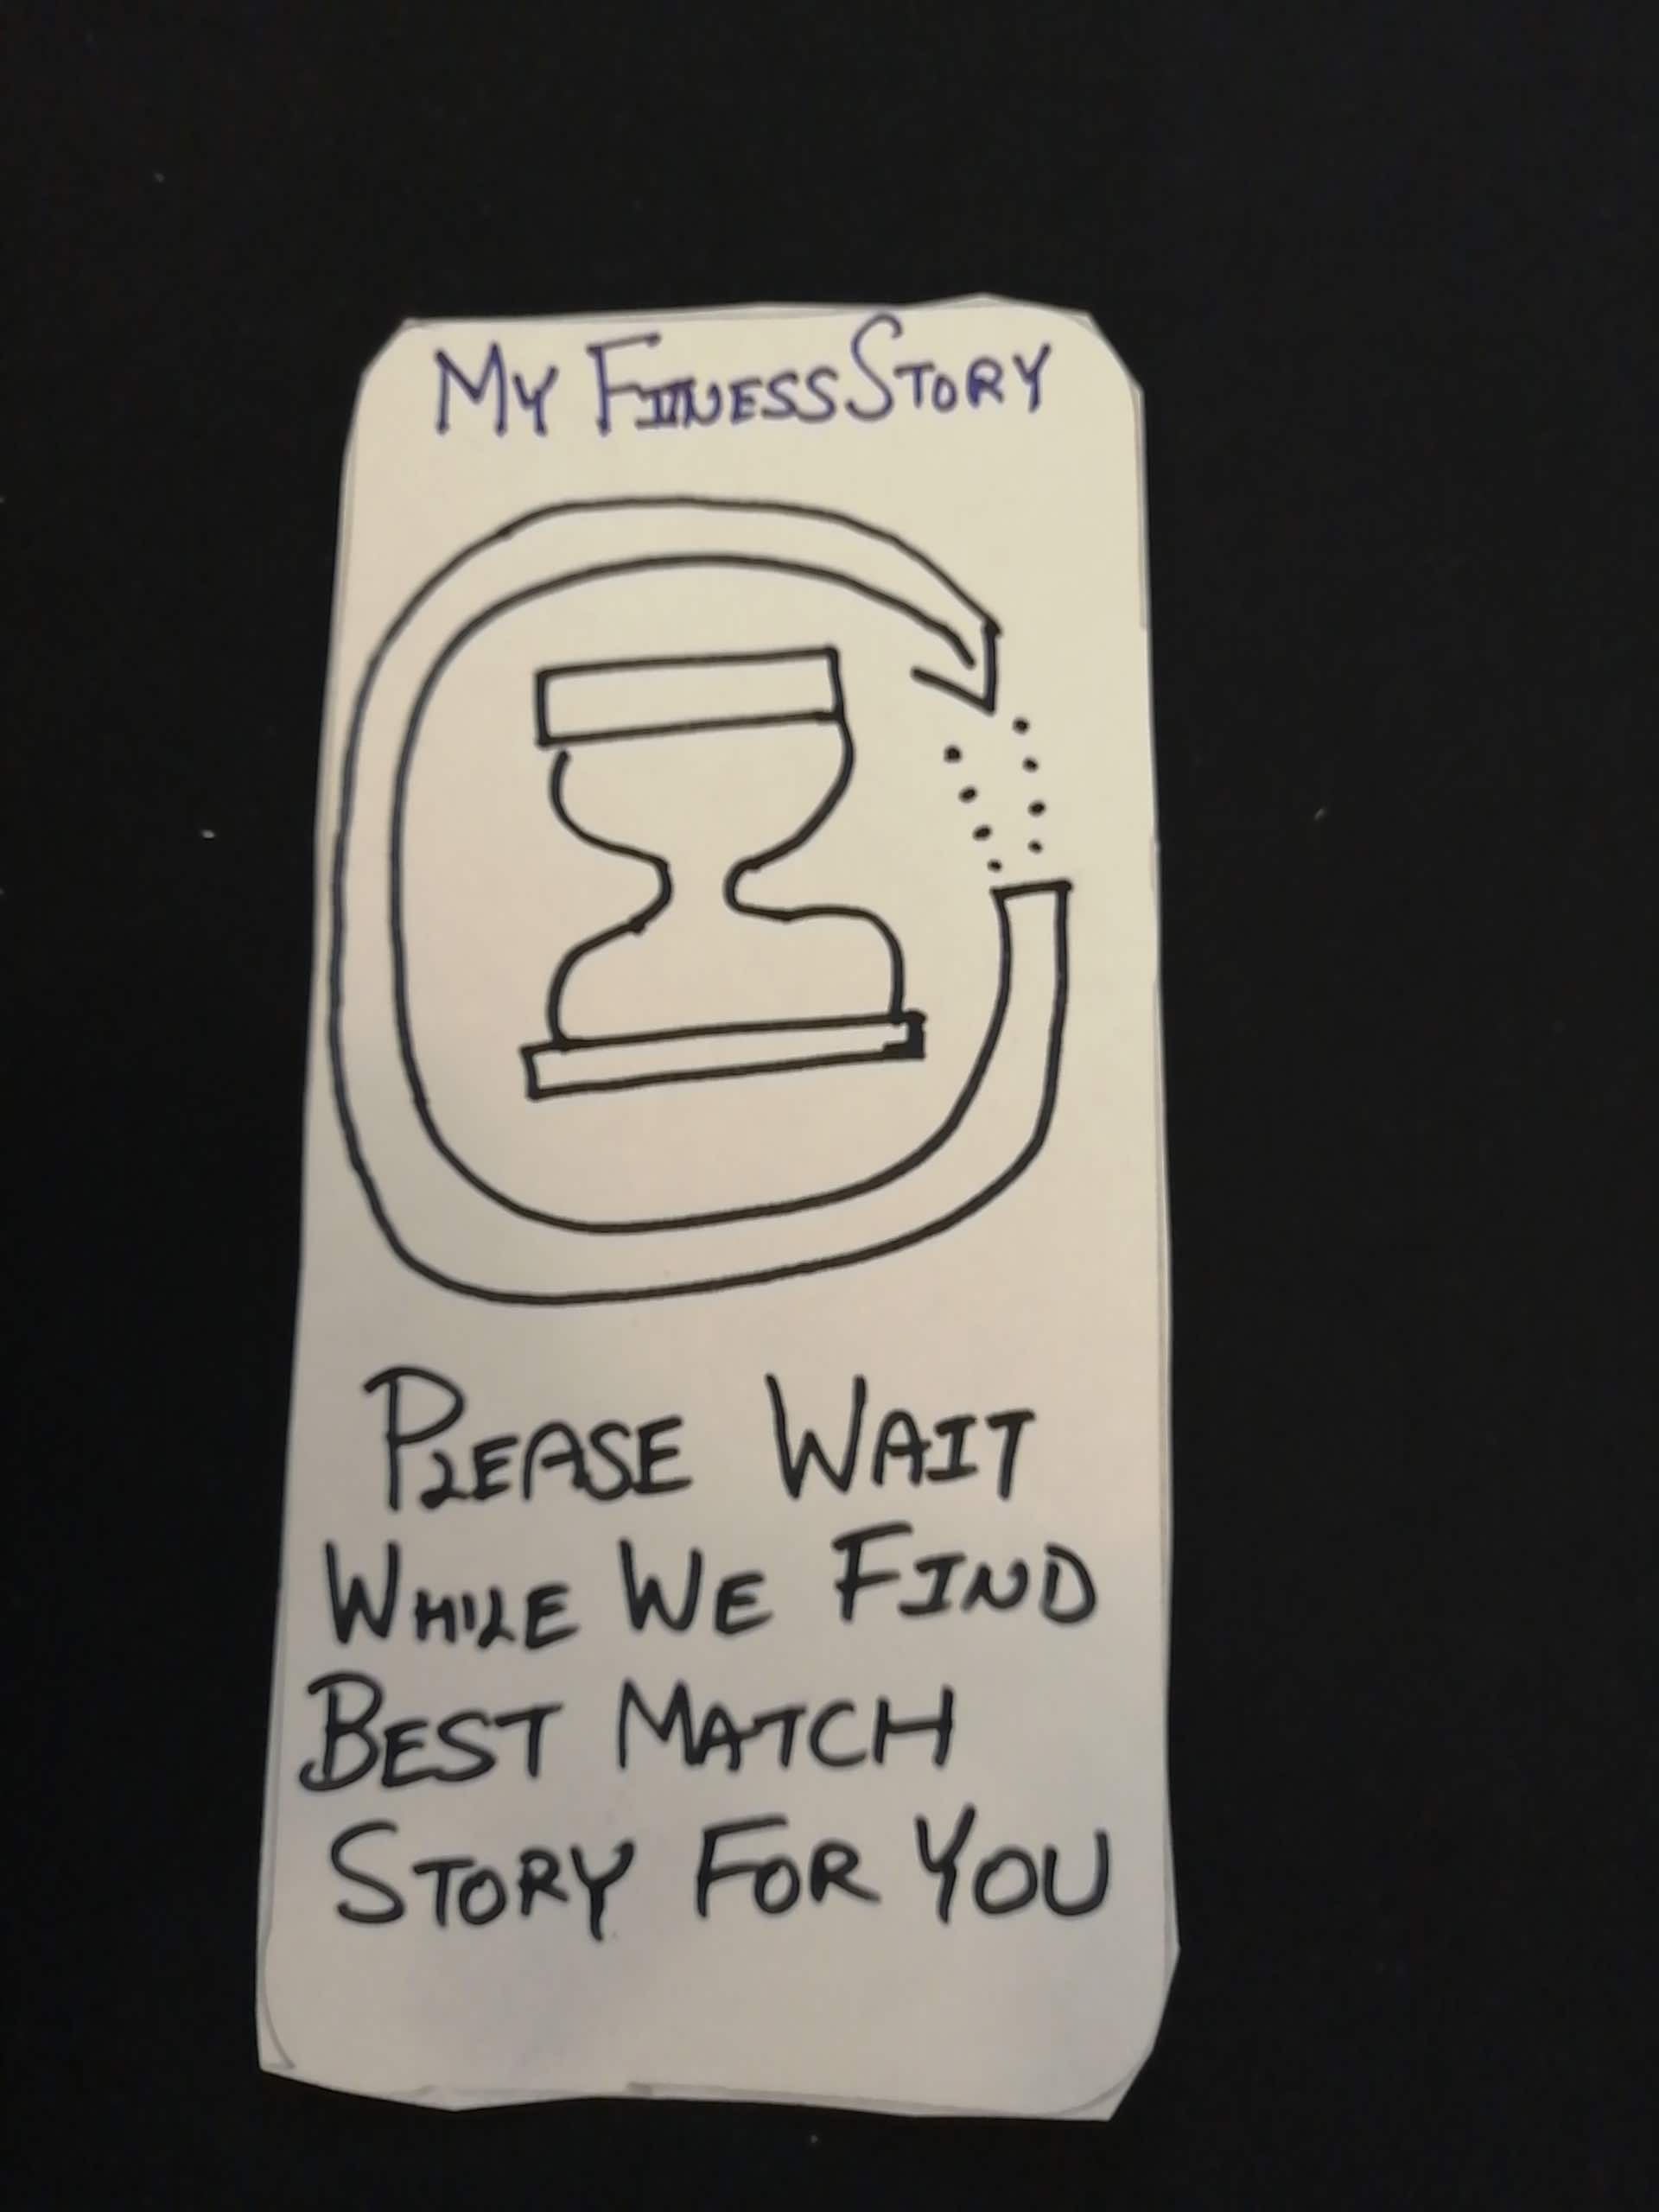 MY FITNESS STORY
PLEASE WAIT
WHILE WE FIND
BEST MATCH
STORY FOR YOU